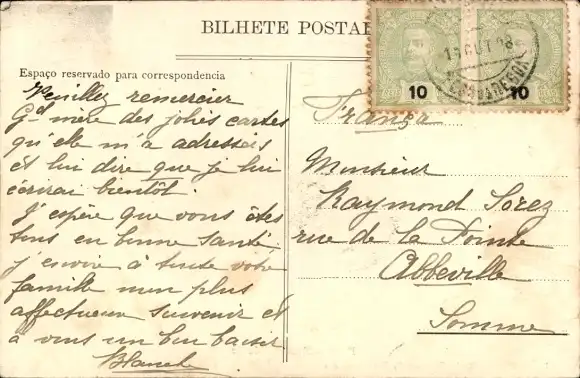 BILHETE POSTAL
Espaço reservado para correspondencia
Veuillez remercier
Gd mère des jolies cartes
qu'elle m'a adressées
et lui dire que je lui
écrirai bientôt.
J'espère que vous êtes
tous en bonne santé,
j'envoie à toute votre
famille mon plus
affectueux souvenir et
à vous un bon baiser
Blanche
10
10
França
Monsieur
Raymond Sorez
rue de la Pointe
Abbeville
Somme